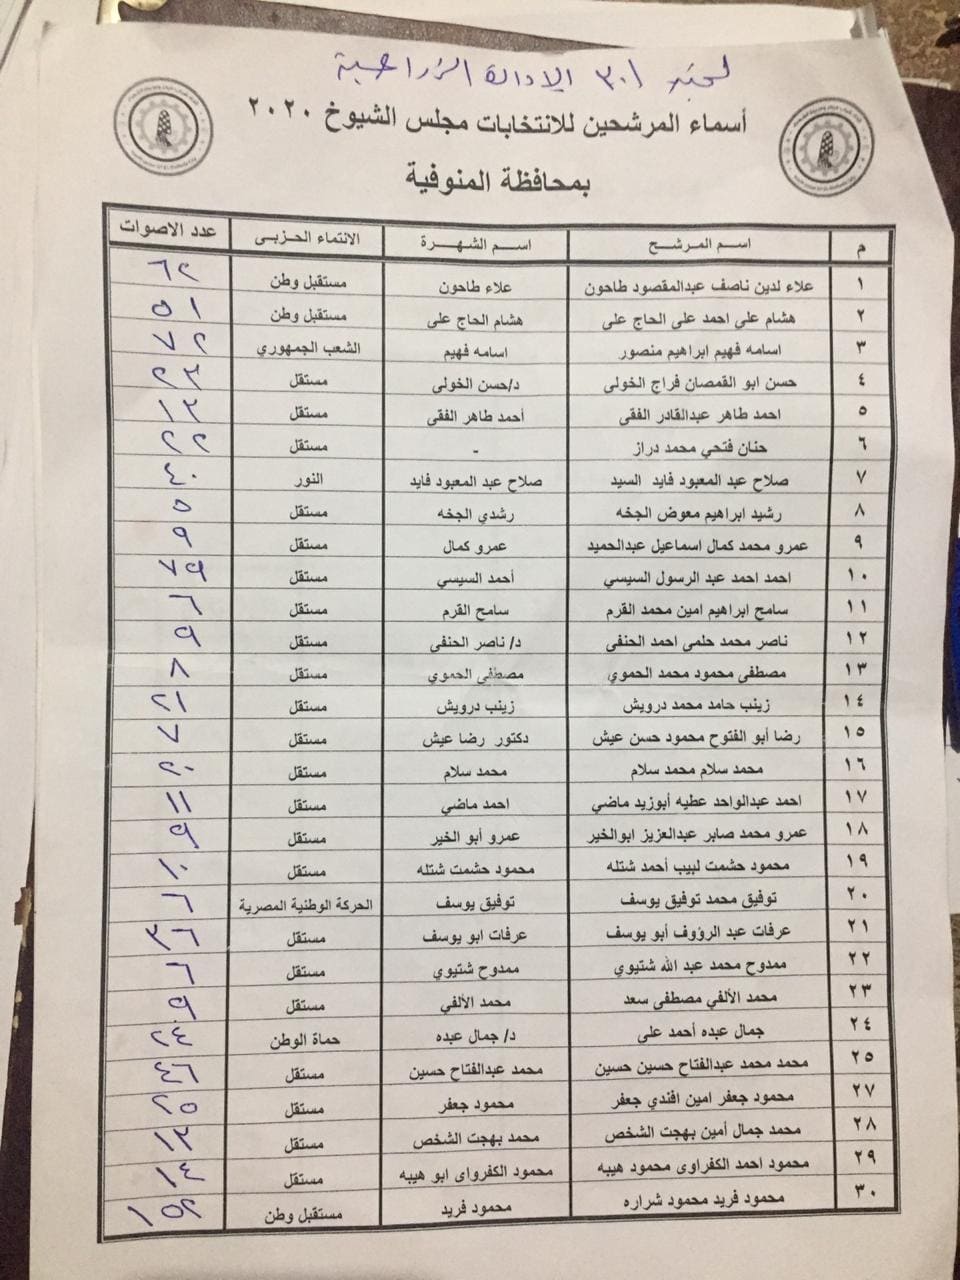 لجنة ٣٠١ الإدارة الزراعية
أسماء المرشحين للانتخابات مجلس الشيوخ ٢٠٢٠
بمحافظة المنوفية
م اسم المرشح اسم الشهرة الانتماء الحزبى عدد الاصوات
١ علاء لدين ناصف عبدالمقصود طاحون علاء طاحون مستقبل وطن
٢ هشام على احمد على الحاج على هشام الحاج على مستقبل وطن ٥١
٣ اسامه فهيم ابراهيم منصور اسامه فهيم الشعب الجمهوري
٤ حسن ابو القمصان فراج الخولى د/حسن الخولى مستقل
٥ احمد طاهر عبدالقادر الفقى أحمد طاهر الفقى مستقل
٦ حنان فتحي محمد دراز - مستقل ٢٢
٧ صلاح عبد المعبود فايد السيد صلاح عبد المعبود فايد النور ٤٠
٨ رشيد ابراهيم معوض الجخه رشدي الجخه مستقل ٥
٩ عمرو محمد كمال اسماعيل عبدالحميد عمرو كمال مستقل ٩
١٠ احمد احمد عبد الرسول السيسي أحمد السيسي مستقل ٧٩
١١ سامح ابراهيم امين محمد القرم سامح القرم مستقل
١٢ ناصر محمد حلمى احمد الحنفى د/ ناصر الحنفى مستقل ٩
١٣ مصطفى محمود محمد الحموي مصطفى الحموي مستقل ٨
١٤ زينب حامد محمد درويش زينب درويش مستقل ٢١
١٥ رضا أبو الفتوح محمود حسن عيش دكتور رضا عيش مستقل ٧
١٦ محمد سلام محمد سلام محمد سلام مستقل ٢٠
١٧ احمد عبدالواحد عطيه أبوزيد ماضي احمد ماضي مستقل ١١
١٨ عمرو محمد صابر عبدالعزيز ابوالخير عمرو أبو الخير مستقل ٩
١٩ محمود حشمت لبيب أحمد شتله محمود حشمت شتله مستقل ١٠
٢٠ توفيق محمد توفيق يوسف توفيق يوسف الحركة الوطنية المصرية
٢١ عرفات عبد الرؤوف أبو يوسف عرفات ابو يوسف مستقل
٢٢ ممدوح محمد عبد الله شتيوي ممدوح شتيوي مستقل
٢٣ محمد الألفي مصطفى سعد محمد الألفي مستقل ٩
٢٤ جمال عبده أحمد على د/ جمال عبده حماة الوطن ٢٤
٢٥ محمد محمد عبدالفتاح حسين حسين محمد عبدالفتاح حسين مستقل ٤٦
٢٧ محمود جعفر امين افندي جعفر محمود جعفر مستقل ٢٥
٢٨ محمد جمال أمين بهجت الشخص محمد بهجت الشخص مستقل
٢٩ محمود احمد الكفراوى محمود هيبه محمود الكفرواى ابو هيبه مستقل ١٤
٣٠ محمود فريد محمود شراره محمود فريد مستقبل وطن